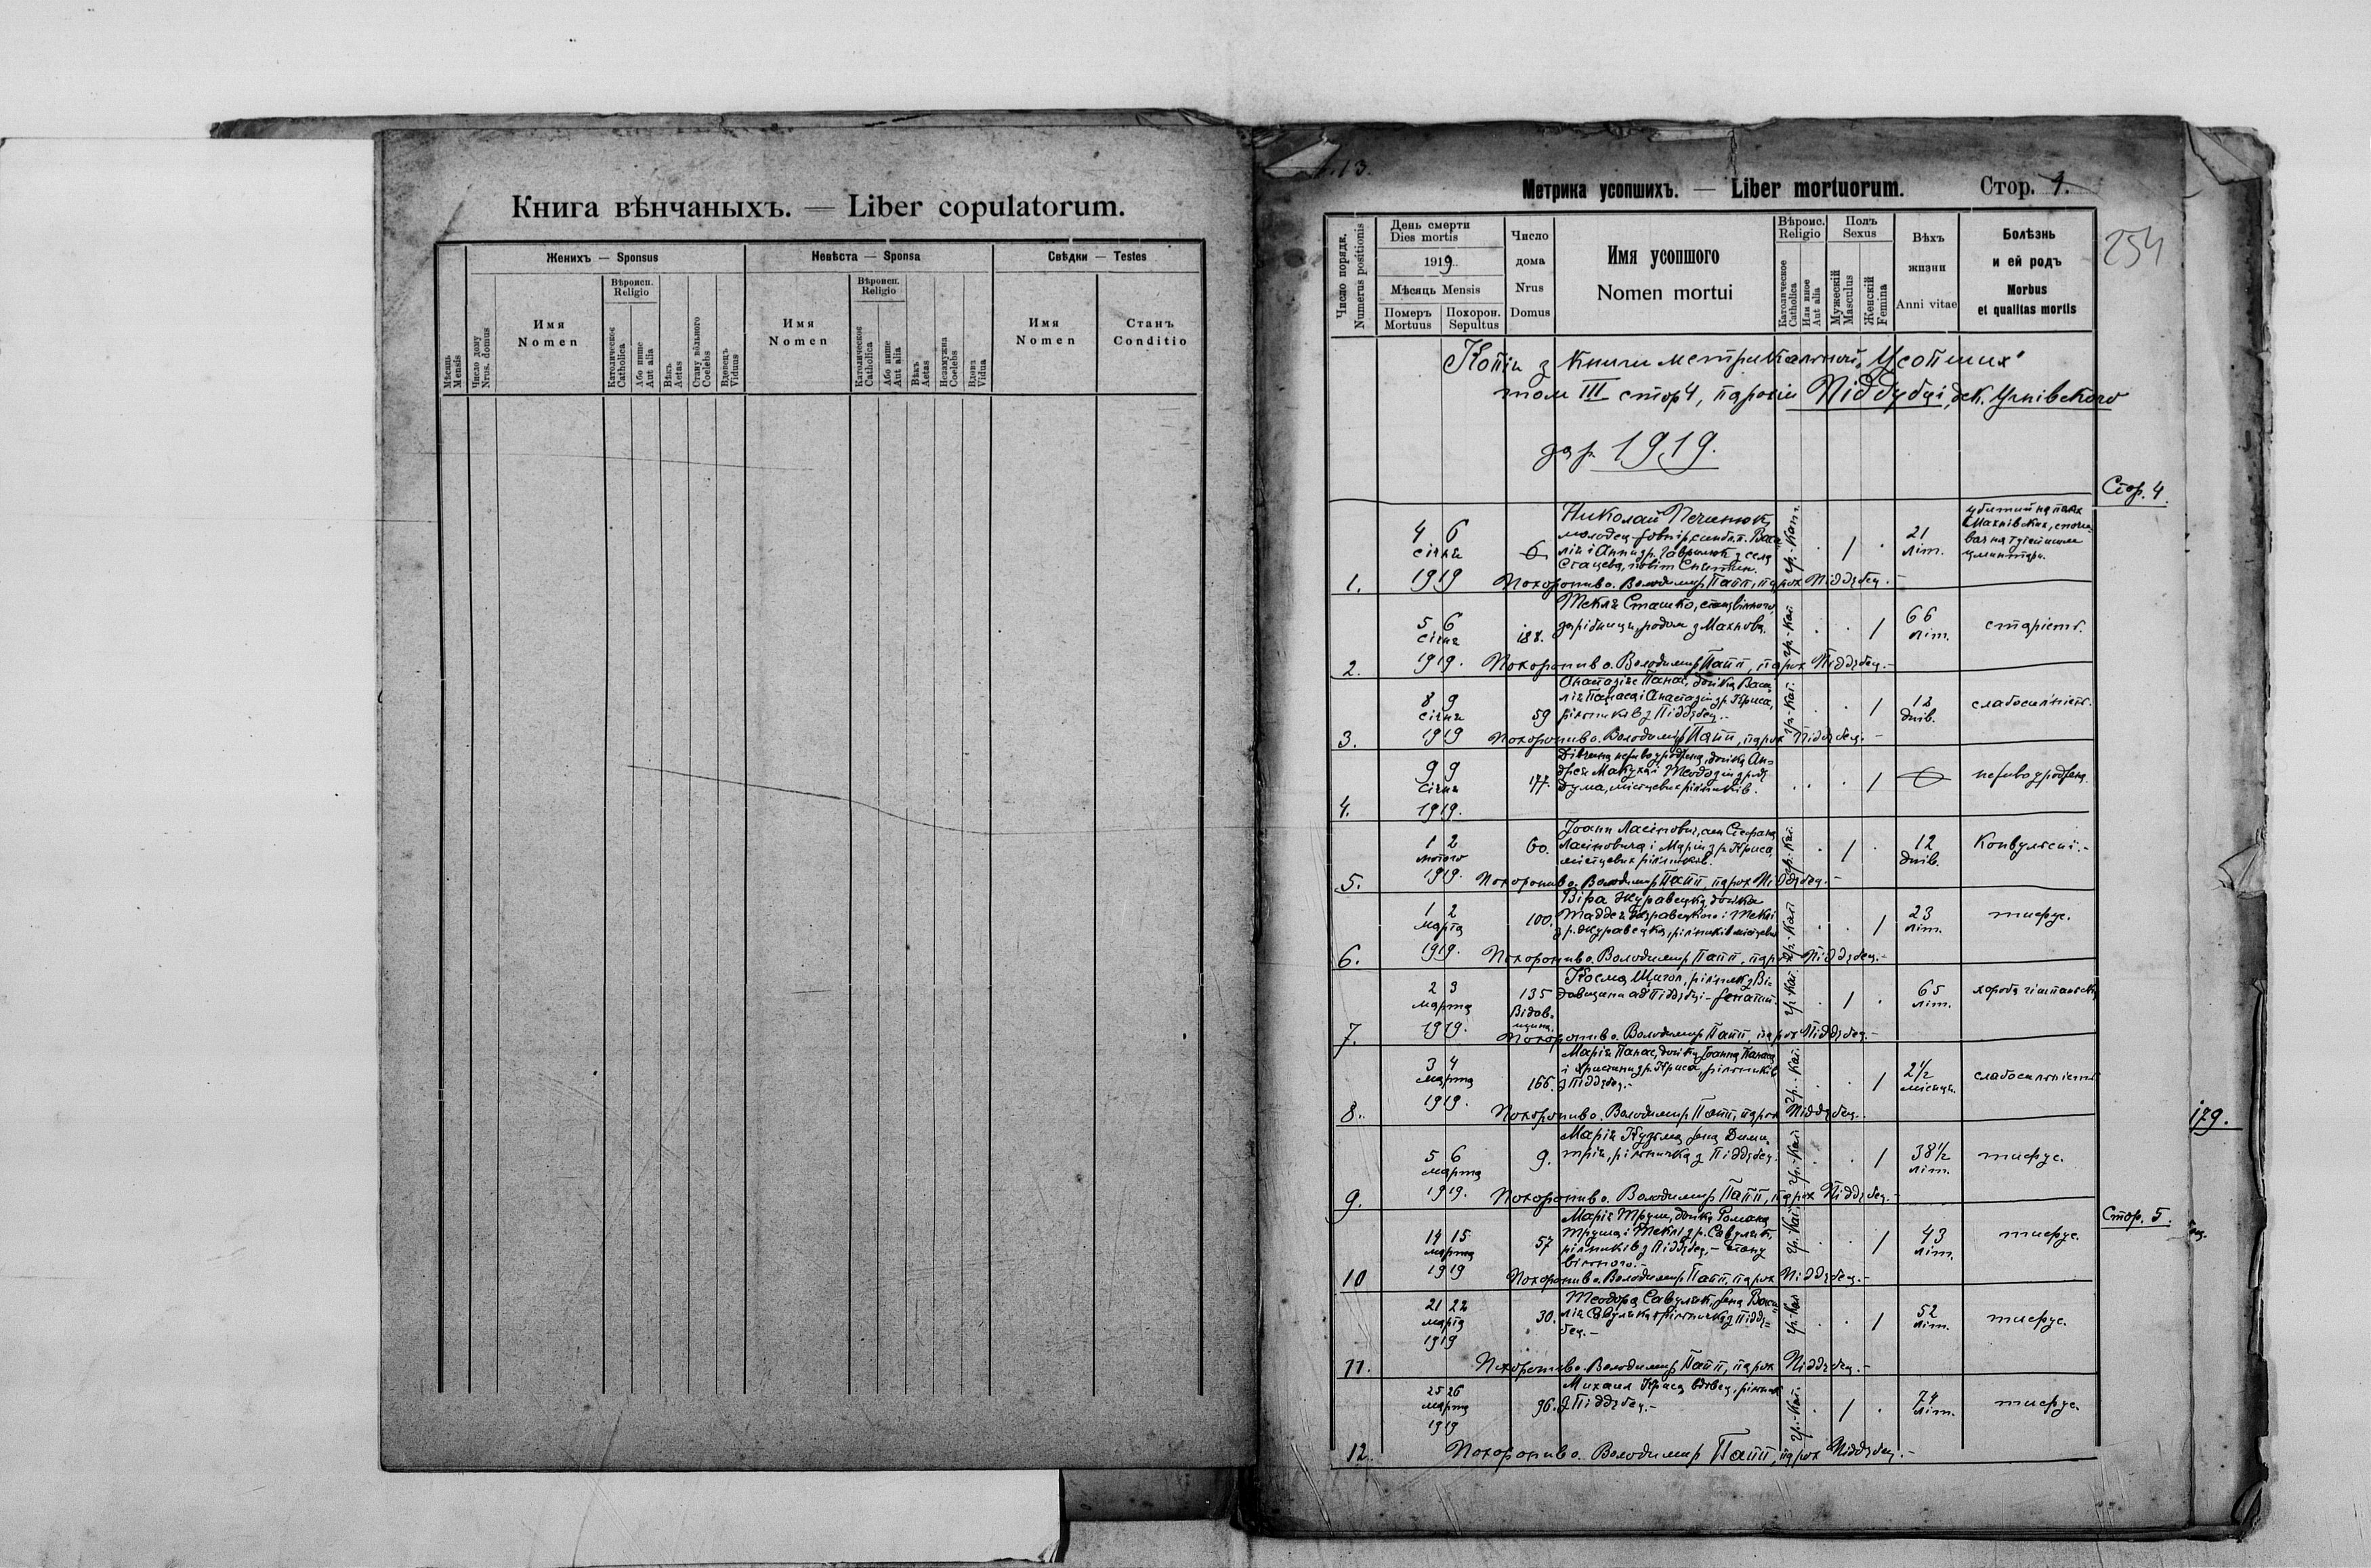 Книга вѣнчаныхъ. — Liber copulatorum.
Женихъ — Sponsus
Невѣста — Sponsa
Свѣдки — Testes
Мѣсяць Mensis
Число дому Nrus. domus
Имя
Nomen
Вѣроисп.
Religio
Католическое Catholica
Або инше Aut alia
Вѣкъ Aetas
Стану вольного Coelebs
Вдовецъ Viduus
Имя
Nomen
Вѣроисп.
Religio
Католическое Catholica
Або инше Aut alia
Вѣкъ Aetas
Незамужна Coelebs
Вдова Vidua
Имя
Nomen
Станъ
Conditio
13.
Метрика усопшихъ. — Liber mortuorum. Стор. 1.
254
Число порядк. Numerus positionis
День смерти
Dies mortis
1919
Мѣсяць Mensis
Померъ
Mortuus
Похорон.
Sepultus
Число
дома
Nrus
Domus
Имя усопшого
Nomen mortui
Вѣроис.
Religio
Католическое Catholica
Или иное Aut alia
Полъ
Sexus
Мужескій Masculus
Женскій Femina
Вѣхъ
жизни
Anni vitae
Болѣзнь
и ей родъ
Morbus
et qualitas mortis
Копія з книги метрикальної "Усопших"
том III стор 4, парохії Піддубці, дек. Угнівского
за р. 1919.
Стор. 4.
1. 4 6 січня 1919 6
Николай
молодец
гр.-кат. 1 21 літ.
Похоронив о. Володимир Папп, парох Піддубец.-
2. 5 6 січня 1919. 188.
Текля Сташко, стану вільного,
зарібниця, родом з Махнова.
гр.-кат. 1 66 літ. старість.
Похоронив о. Володимир Папп, парох Піддубец.-
3. 8 9 січня 1919 59
Анастазія Панас, дочка Васи-
лія Панаса і Анастазії з р. Криса,
рільників з Піддубец.-
гр.-кат. 1 12 днів. слабосильність.
Похоронив о. Володимир Папп, парох Піддубец.-
4. 9 9 січня 1919. 177.
Дівчина неживоурождена, дочка Ан-
дрея Макуха і Теодозії з роду
Дума, місцевих рільників.
1 неживоурождена.
5. 1 2 лютого 1919. 60.
Іоанн Ласійович, син Стефана
Ласійовича і Марії з р. Криса,
місцевих рільників.
гр.-кат. 1 12 днів. Конвульсиї.-
Похоронив о. Володимир Папп, парох Піддубец.-
6. 1 2 марта 1919. 100.
Віра Журавецка, дочка
Таддея Журавецкого і Теклі
з р. Журавецка, рільників місцевих
гр.-кат 1 23 літ. тифус.
Похоронив о. Володимир Папп, парох Піддубец.-
7. 2 3 марта 1919. 135 Відов-
щина.
Косма Щигол, рільник з Ві-
довщини ад Піддубці - женатий.
гр.-кат. 1 65 літ. хороба гішпанська
Похоронив о. Володимир Папп, парох Піддубец.-
8. 3 4 марта 1919. 166.
Марія Панас, дочка Іоанна Панаса
і Христини з р. Криса, рільників
з Піддубец.-
гр.-кат. 1 2 1/2 місяця. слабосильність
Похоронив о. Володимир Папп, парох Піддубец.-
179.
9. 5 6 марта 1919. 9.
Марія Кузьма жена Дими-
трія, рільничка з Піддубец.
гр.-кат. 1 38 1/2 літ. тифус.
Похоронив о. Володимир Папп, парох Піддубец.-
Стор. 5.
10 14 15 марта 1919 57
Марія Труш, дочка Романа
Труша і Теклі з р. Савуляк,
рільників з Піддубец.- стану
вільного.-
гр.-кат. 1 43 літ. тифус.
Похоронив о. Володимир Папп, парох Піддубец.-
11. 21 22 марта 1919 30.
Теодора Савуляк, жена Васи-
лія Савуляка, рільничка з Підду-
бец.-
гр.-кат 1 52 літ. тифус.
Похоронив о. Володимир Папп, парох Піддубец.-
12. 25 26 марта 1919 96.
Михаил Криса вдовец, рільник
з Піддубец.-
гр.-кат. 1 74 літ. тифус.
Похоронив о. Володимир Папп, парох Піддубец.-